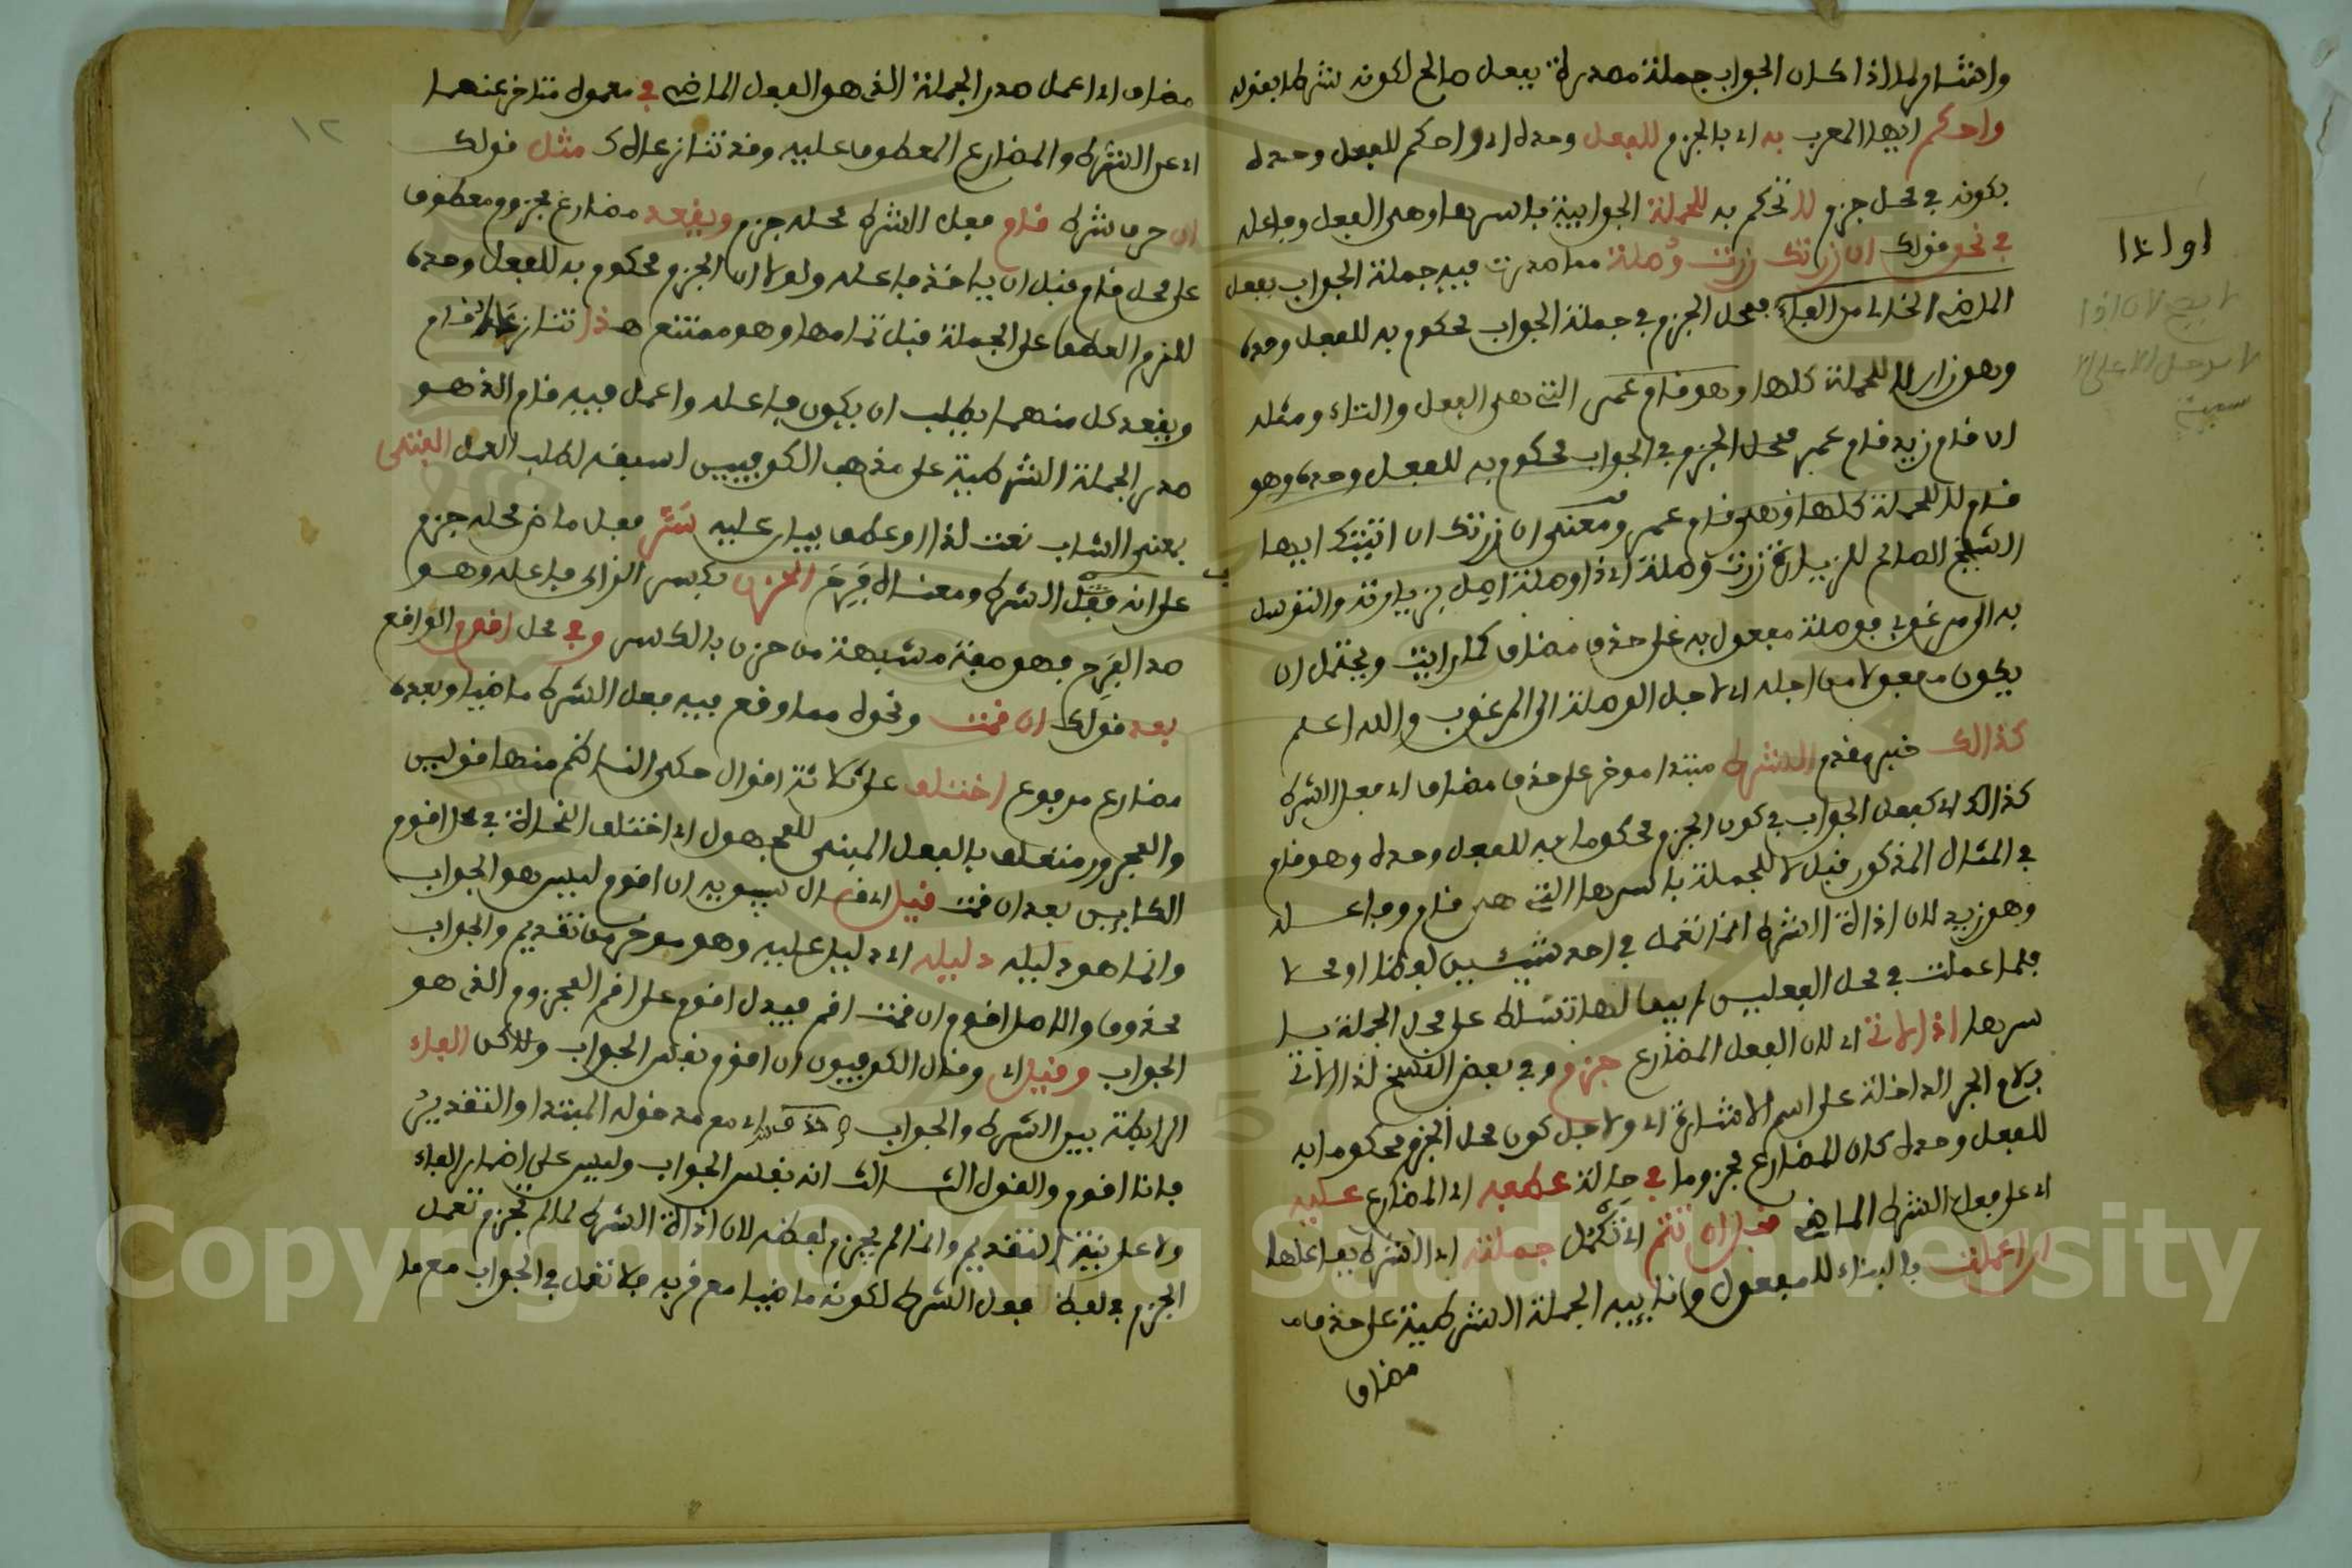 واشار لما اذا كان الجواب جملة مصدرة بفعل صالح لكونه شرطا بقوله
واحكم ايها المعرب به اي بالجزم للفعل وحده اي واحكم للفعل وحده
بكونه في محل جزم لا تحكم به للجملة الجوابية باسرها وهي الفعل وفاعله
في نحو قولك ان زرتك زرت وصلة مما صدرت فيه جملة الجواب بفعل
الماضي الخالي من الفاء فمحل الجزم في جملة الجواب محكوم به للفعل وحده
وهو زار لا للجملة كلها وهو قام عمر التي هي الفعل والتاء ومثله
ان قام زيد قام عمر فمحل الجزم في الجواب محكوم به للفعل وحده وهو
قام لا للجملة كلها وهي قام عمر ومعنى ان زرتك ان اتيتك ايها
الشيخ الصالح للزيارة زرت وصلة اي ذا وصلة اهل بزيارته والتوسل
به الى مرغوب فوصلة مفعول به على حذف مضاف كما رايت ويحتمل ان
يكون مفعولا من اجله اي لاجل الوصلة الى المرغوب والله اعلم
كذالك خبر مقدم الشرط مبتدا موخر على حذف مضاف اي فعل الشرط
كذالك اي كفعل الجواب في كون الجزم محكوما به للفعل وحده وهو قام
في المثال المذكور قبل لا للجملة باسرها التي هي قام وفاعله
وهو زيد لان اداة الشرط انما تعمل في احد شيئين لفظا او محلا
فلما عملت في محل الفعلين لم يبق لها تسلط على محل الجملة با
سرها اذ الاتي اي لان الفعل المضارع جزم وفي بعض النسخ لذا الاتي
بلام الجر الداخلة على اسم الاشارة اي ولاجل كون محل الجزم محكوما به
للفعل وحده كان المضارع مجزوما في حالة عطفه اي المضارع عليه
اي على فعل الشرط الماضي قبل ان تتم اي تكمل جملته اي الشرط بفاعلها
ان اعملت بالبناء للمفعول ونايبه الجملة الشرطية على حذف
مضاف
اوايدا
١٢
مضاف اي اعمل صدر الجملة الذي هو الفعل الماضي في معمول متاخر عنهما
اي عن الشرط والمضارع المعطوف عليه وقد تنازعاه مثل قولك
ان حرف شرط قام فعل الشرط محله جزم ويقعد مضارع مجزوم معطوف
على محل قام قبل ان ياخذ فاعله ولولا ان الجزم محكوم به للفعل وحده
للزم العطف على الجملة قبل تمامها وهو ممتنع هذا تنازعه قام
ويقعد كل منهما يطلب ان يكون فاعله واعمل فيه قام الذي هو
صدر الجملة الشرطية على مذهب الكوفيين اسبقه لطلب العمل الفتى
بمعنى الشاب نعت لذا او عطف بيان عليه سر فعل ماض محله جزم
على انه فعل الشرط ومعناه فرح الحزن بكسر الزاي فاعله وهو
ضد الفرح فهو صفة مشبهة من حزن بالكسر وفي محل اقوم الواقع
بعد قولك ان قمت ونحوه مما وقع فيه فعل الشرط ماضيا وبعده
مضارع مرفوع اختلف على ثلاثة اقوال حكى الناظم منها قولين
والمجرور متعلق بالفعل المبني للمجهول اي اختلف النحاة في محل اقوم
الكاين بعد ان قمت فقيل اي قال سيبويه ان اقوم ليس هو الجواب
وانما هو دليله دليله اي دليل عليه وهو موخر من تقديم والجواب
محذوف والاصل اقوم ان قمت اقم فيدل اقوم على اقم المجزوم الذي هو
الجواب وقيل اي وقال الكوفيون ان اقوم نفس الجواب ولاكن الفاء
الرابطة بين الشرط والجواب حذفت اي مع مدخوله المبتدا والتقدير
فانا اقوم والقول الثالث انه نفس الجواب وليس على اضمار الفاء
ولا على نية التقديم وانما لم يجزم لفظه لان اداة الشرط لما لم تجزم تعمل
الجزم في لفظ فعل الشرط لكونه ماضيا مع قربه فلا تعمل في الجواب مع ما
Copyright © King Saud University